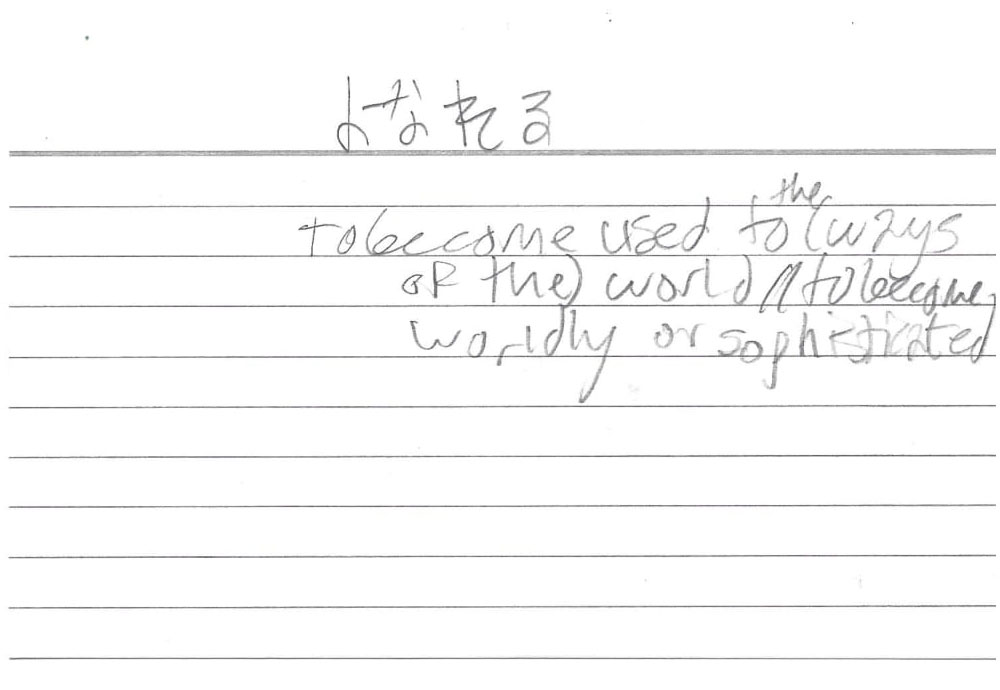 よなれる
to become used to the (ways
of the) world // to become
worldly or sophisticated